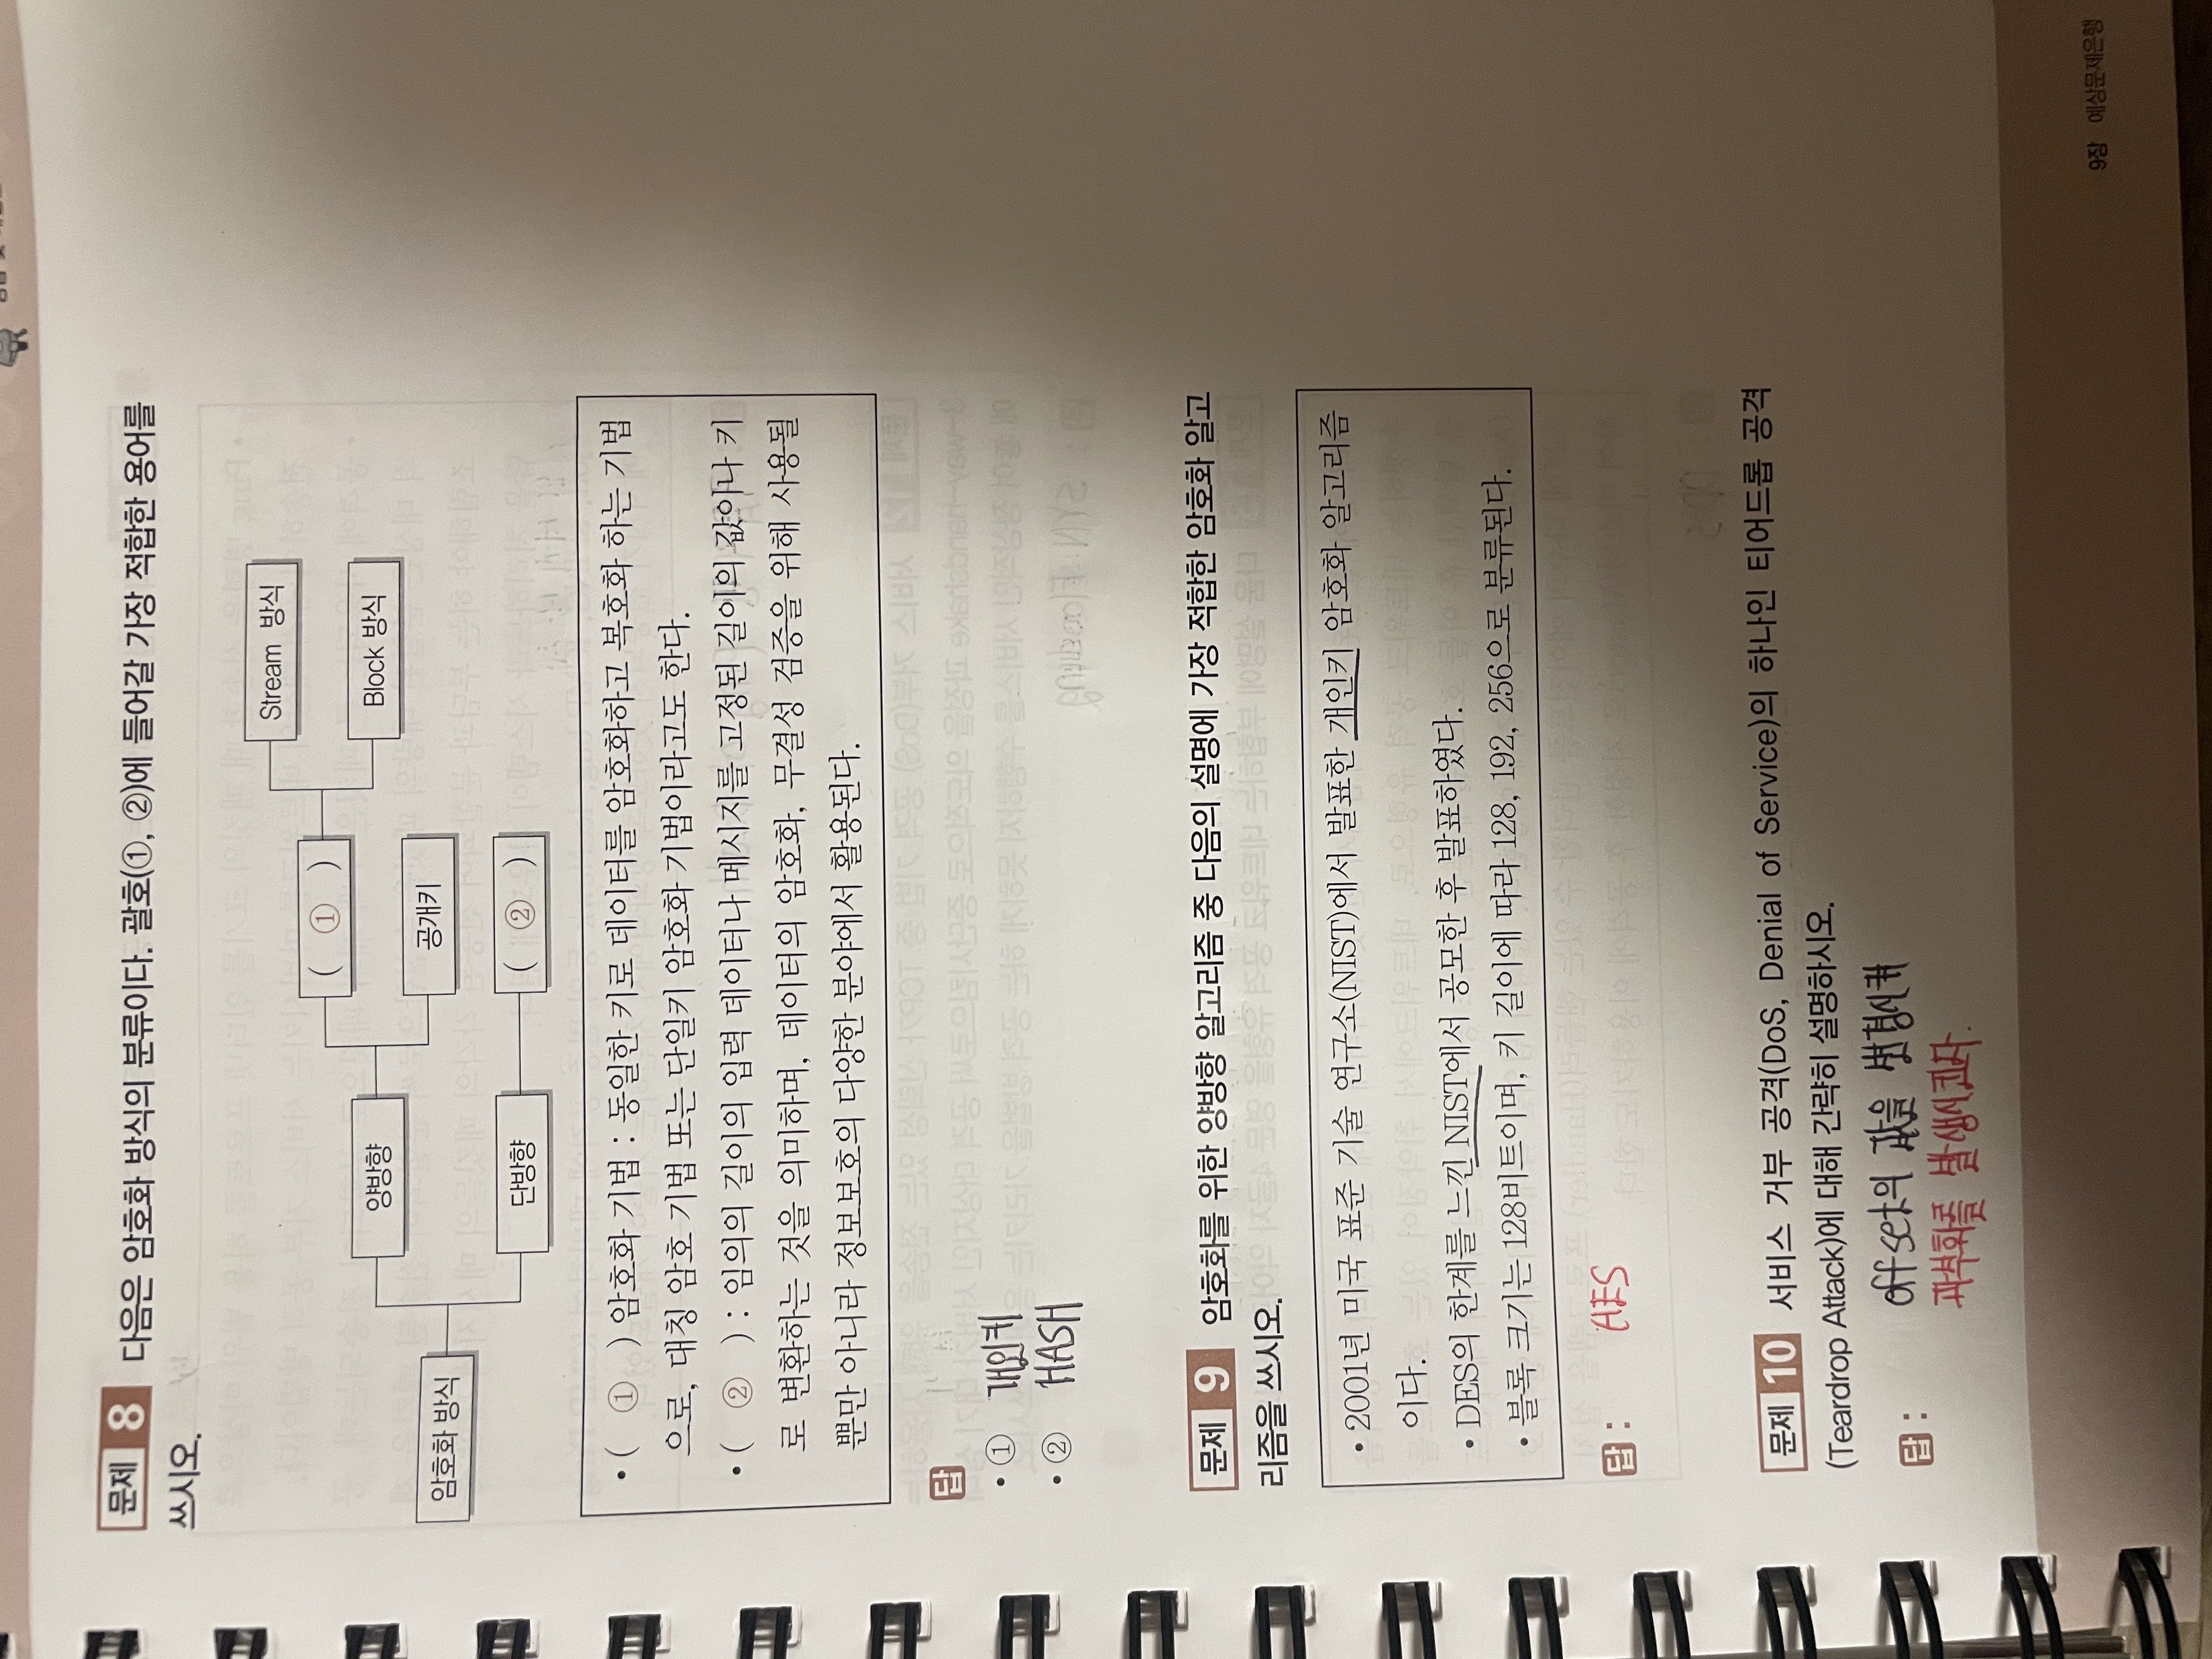 문제 8 다음은 암호화 방식의 분류이다. 괄호(①, ②)에 들어갈 가장 적합한 용어를
쓰시오.
Stream 방식
( ① )
Block 방식
양방향
공개키
암호화 방식
단방향
( ② )
• ( ① ) 암호화 기법 : 동일한 키로 데이터를 암호화하고 복호화 하는 기법
으로, 대칭 암호 기법 또는 단일키 암호화 기법이라고도 한다.
• ( ② ) : 임의의 길이의 입력 데이터나 메시지를 고정된 길이의 값이나 키
로 변환하는 것을 의미하며, 데이터의 암호화, 무결성 검증을 위해 사용될
뿐만 아니라 정보보호의 다양한 분야에서 활용된다.
답
• ① 개인키
• ② HASH
문제 9 암호화를 위한 양방향 알고리즘 중 다음의 설명에 가장 적합한 암호화 알고
리즘을 쓰시오.
• 2001년 미국 표준 기술 연구소(NIST)에서 발표한 개인키 암호화 알고리즘
이다.
• DES의 한계를 느낀 NIST에서 공모한 후 발표하였다.
• 블록 크기는 128비트이며, 키 길이에 따라 128, 192, 256으로 분류된다.
답 : AES
문제 10 서비스 거부 공격(DoS, Denial of Service)의 하나인 티어드롭 공격
(Teardrop Attack)에 대해 간략히 설명하시오.
답 : offset의 값을 변형시켜
과부화를 발생시킨다.
9장 예상문제은행